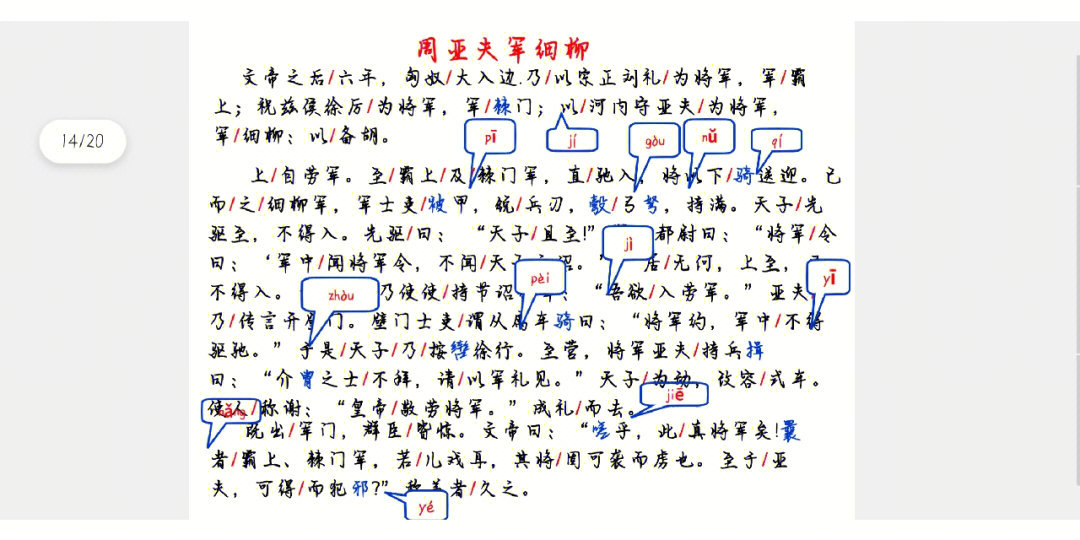 周亚夫军细柳
文帝之后/六年，匈奴/大入边.乃/以宗正刘礼/为将军，军/霸
上；祝兹侯徐厉/为将军，军/棘门；以/河内守亚夫/为将军，
军/细柳：以/备胡。
14/20
pī
jí
gòu
nǔ
qí
上/自劳军。至/霸上/及/棘门军，直/驰入，将以下/骑送迎。已
而/之/细柳军，军士吏/被甲，锐/兵刃，彀/弓弩，持满。天子/先
驱至，不得入。先驱/曰：“天子/且至!” 都尉曰：“将军/令
jì
曰：‘军中/闻将军令，不闻/天子 诏。” 居/无何，上至，
pèi
yī
zhòu
不得入。 乃使使/持节诏 ：“吾欲/入劳军。”亚夫
乃/传言开壁门。壁门士吏/谓从属车骑曰：“将军约，军中/不得
驱驰。”于是/天子/乃/按辔徐行。至营，将军亚夫/持兵揖
曰：“介胄之士/不拜，请/以军礼见。”天子/为动，改容/式车。
jiē
nǎng
使人/称谢：“皇帝/敬劳将军。”成礼/而去。
既出/军门，群臣/皆惊。文帝曰：“嗟乎，此/真将军矣!曩
者/霸上、棘门军，若/儿戏耳，其将/固可袭而虏也。至于/亚
夫，可得/而犯邪?” 称善者/久之。
yé